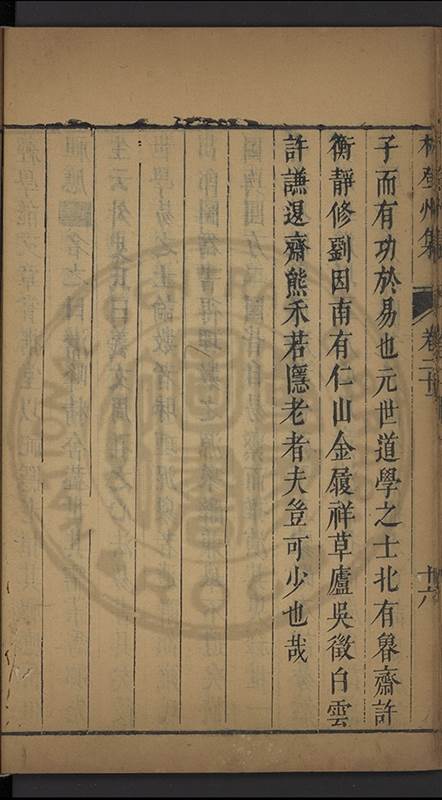 林登州集 卷二十 十六
子而有功於易也元世道學之士北有魯齋許
衡靜修劉因南有仁山金履祥草廬吳徵白雲
許謙退齋熊禾若隱老者夫豈可少也哉